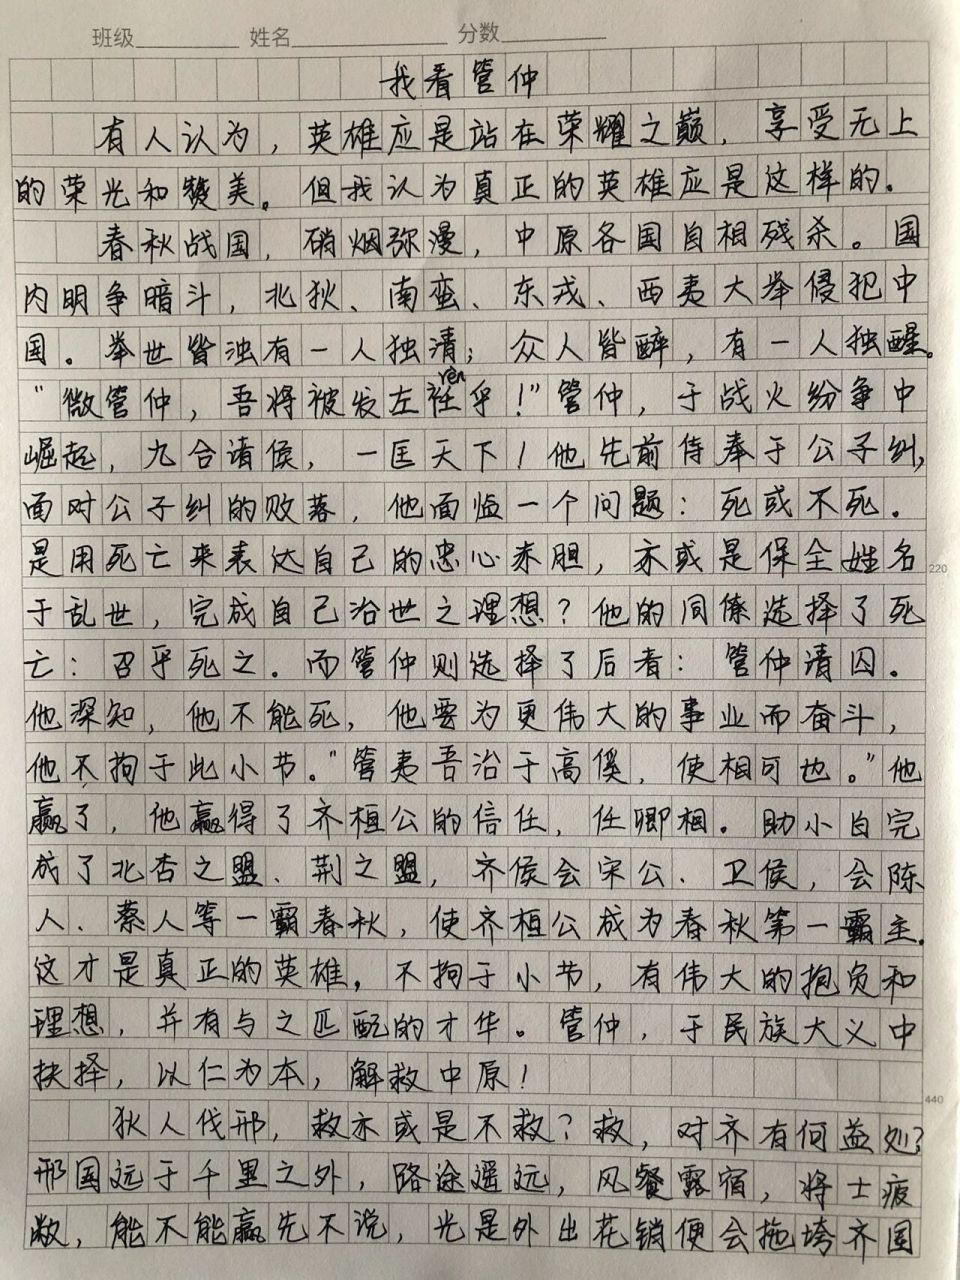 班级 姓名 分数
我看管仲
有人认为，英雄应是站在荣耀之巅，享受无上
的荣光和赞美。但我认为真正的英雄应是这样的。
春秋战国，硝烟弥漫，中原各国自相残杀。国
内明争暗斗，北狄、南蛮、东戎、西夷大举侵犯中
国。举世皆浊有一人独清；众人皆醉，有一人独醒。
rèn
“微管仲，吾将被发左衽乎！”管仲，于战火纷争中
崛起，九合诸侯，一匡天下！他先前侍奉于公子纠，
面对公子纠的败落，他面临一个问题：死或不死。
是用死亡来表达自己的忠心赤胆，亦或是保全姓名
220
于乱世，完成自己治世之理想？他的同僚选择了死
亡：召乎死之。而管仲则选择了后者：管仲请囚。
他深知，他不能死，他要为更伟大的事业而奋斗，
他不拘于此小节。“管夷吾治于高傒，使相可也。”他
赢了，他赢得了齐桓公的信任，任卿相。助小白完
成了北杏之盟、荆之盟，齐侯会宋公、卫侯，会陈
人、蔡人等一霸春秋，使齐桓公成为春秋第一霸主。
这才是真正的英雄，不拘于小节，有伟大的抱负和
理想，并有与之匹配的才华。管仲，于民族大义中
抉择，以仁为本，解救中原！
440
狄人伐邢，救亦或是不救？救，对齐有何益处？
邢国远于千里之外，路途遥远，风餐露宿，将士疲
敝，能不能赢先不说，光是外出花销便会拖垮齐国